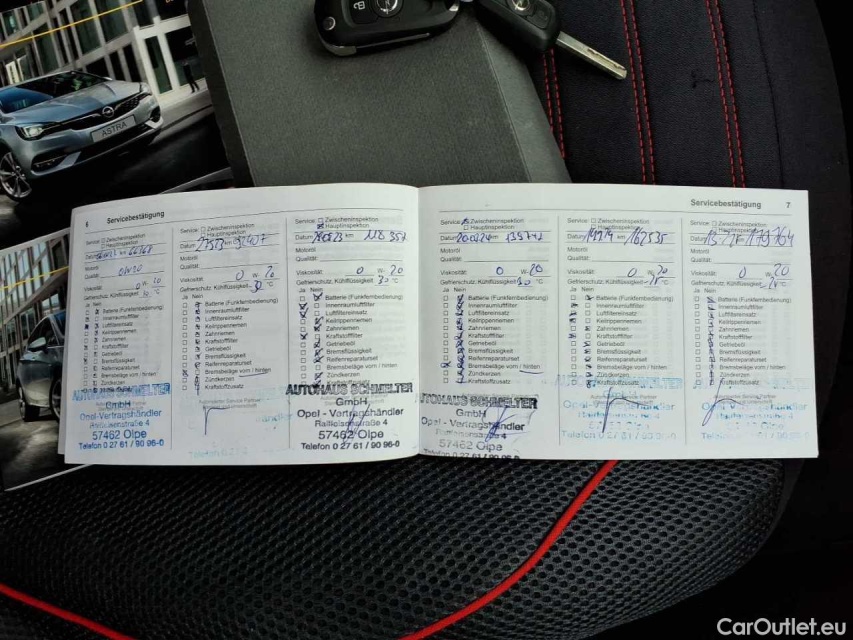 ASTRA
6 Servicebestätigung
Service: Zwischeninspektion
Hauptinspektion
Datum km 66168
Motoröl 0W20
Qualität:
Viskosität: 0 W- 20
Gefrierschutz, Kühlflüssigkeit °C
Ja Nein
Batterie (Funkfernbedienung)
Innenraumluftfilter
Luftfiltereinsatz
Keilrippenriemen
Zahnriemen
Kraftstofffilter
Getriebeöl
Bremsflüssigkeit
Reifenreparaturset
Bremsbeläge vorn / hinten
Zündkerzen
AUTOHAUS SCHMELTER
GmbH
Opel-Vertragshändler
Raiffeisenstraße 4
57462 Olpe
Telefon 0 27 61 / 90 96-0
Service: Zwischeninspektion
Hauptinspektion
Datum km 92407
Motoröl
Qualität:
Viskosität: 0 W- 20
Gefrierschutz, Kühlflüssigkeit °C
Ja Nein
Batterie (Funkfernbedienung)
Innenraumluftfilter
Luftfiltereinsatz
Keilrippenriemen
Zahnriemen
Kraftstofffilter
Getriebeöl
Bremsflüssigkeit
Reifenreparaturset
Bremsbeläge vorn / hinten
Zündkerzen
Kraftstoffzusatz
Service: Zwischeninspektion
Hauptinspektion
Datum km 118 357
Motoröl
Qualität:
Viskosität: 0 W- 20
Gefrierschutz, Kühlflüssigkeit 30 °C
Ja Nein
Batterie (Funkfernbedienung)
Innenraumluftfilter
Luftfiltereinsatz
Keilrippenriemen
Zahnriemen
Kraftstofffilter
Getriebeöl
Bremsflüssigkeit
Reifenreparaturset
Bremsbeläge vorn / hinten
Zündkerzen
AUTOHAUS SCHMELTER
GmbH
Opel - Vertragshändler
Raiffeisenstraße 4
57462 Olpe
Telefon 0 27 61 / 90 96-0
Servicebestätigung 7
Service: Zwischeninspektion
Hauptinspektion
Datum 200324 139742
Motoröl
Qualität:
Viskosität: 0 W-20
Gefrierschutz, Kühlflüssigkeit 30 °C
Ja Nein
Batterie (Funkfernbedienung)
Innenraumluftfilter
Luftfiltereinsatz
Keilrippenriemen
Zahnriemen
Kraftstofffilter
Getriebeöl
Bremsflüssigkeit
Reifenreparaturset
Bremsbeläge vorn / hinten
Zündkerzen
Kraftstoffzusatz
AUTOHAUS SCHMELTER
GmbH
Opel - Vertragshändler
Raiffeisenstraße 4
57462 Olpe
Telefon 0 27 61 / 90 96-0
Service: Zwischeninspektion
Hauptinspektion
Datum km 162535
Motoröl
Qualität:
Viskosität: 0 W- 20
Gefrierschutz, Kühlflüssigkeit °C
Ja Nein
Batterie (Funkfernbedienung)
Innenraumluftfilter
Luftfiltereinsatz
Keilrippenriemen
Zahnriemen
Kraftstofffilter
Getriebeöl
Bremsflüssigkeit
Reifenreparaturset
Bremsbeläge vorn / hinten
Zündkerzen
Kraftstoffzusatz
Service: Zwischeninspektion
Hauptinspektion
Datum 179764
Motoröl
Qualität:
Viskosität: 0 W- 20
Gefrierschutz, Kühlflüssigkeit °C
Ja Nein
Batterie (Funkfernbedienung)
Innenraumluftfilter
Luftfiltereinsatz
Keilrippenriemen
Zahnriemen
Kraftstofffilter
Getriebeöl
Bremsflüssigkeit
Reifenreparaturset
Bremsbeläge vorn / hinten
Zündkerzen
Kraftstoffzusatz
CarOutlet.eu